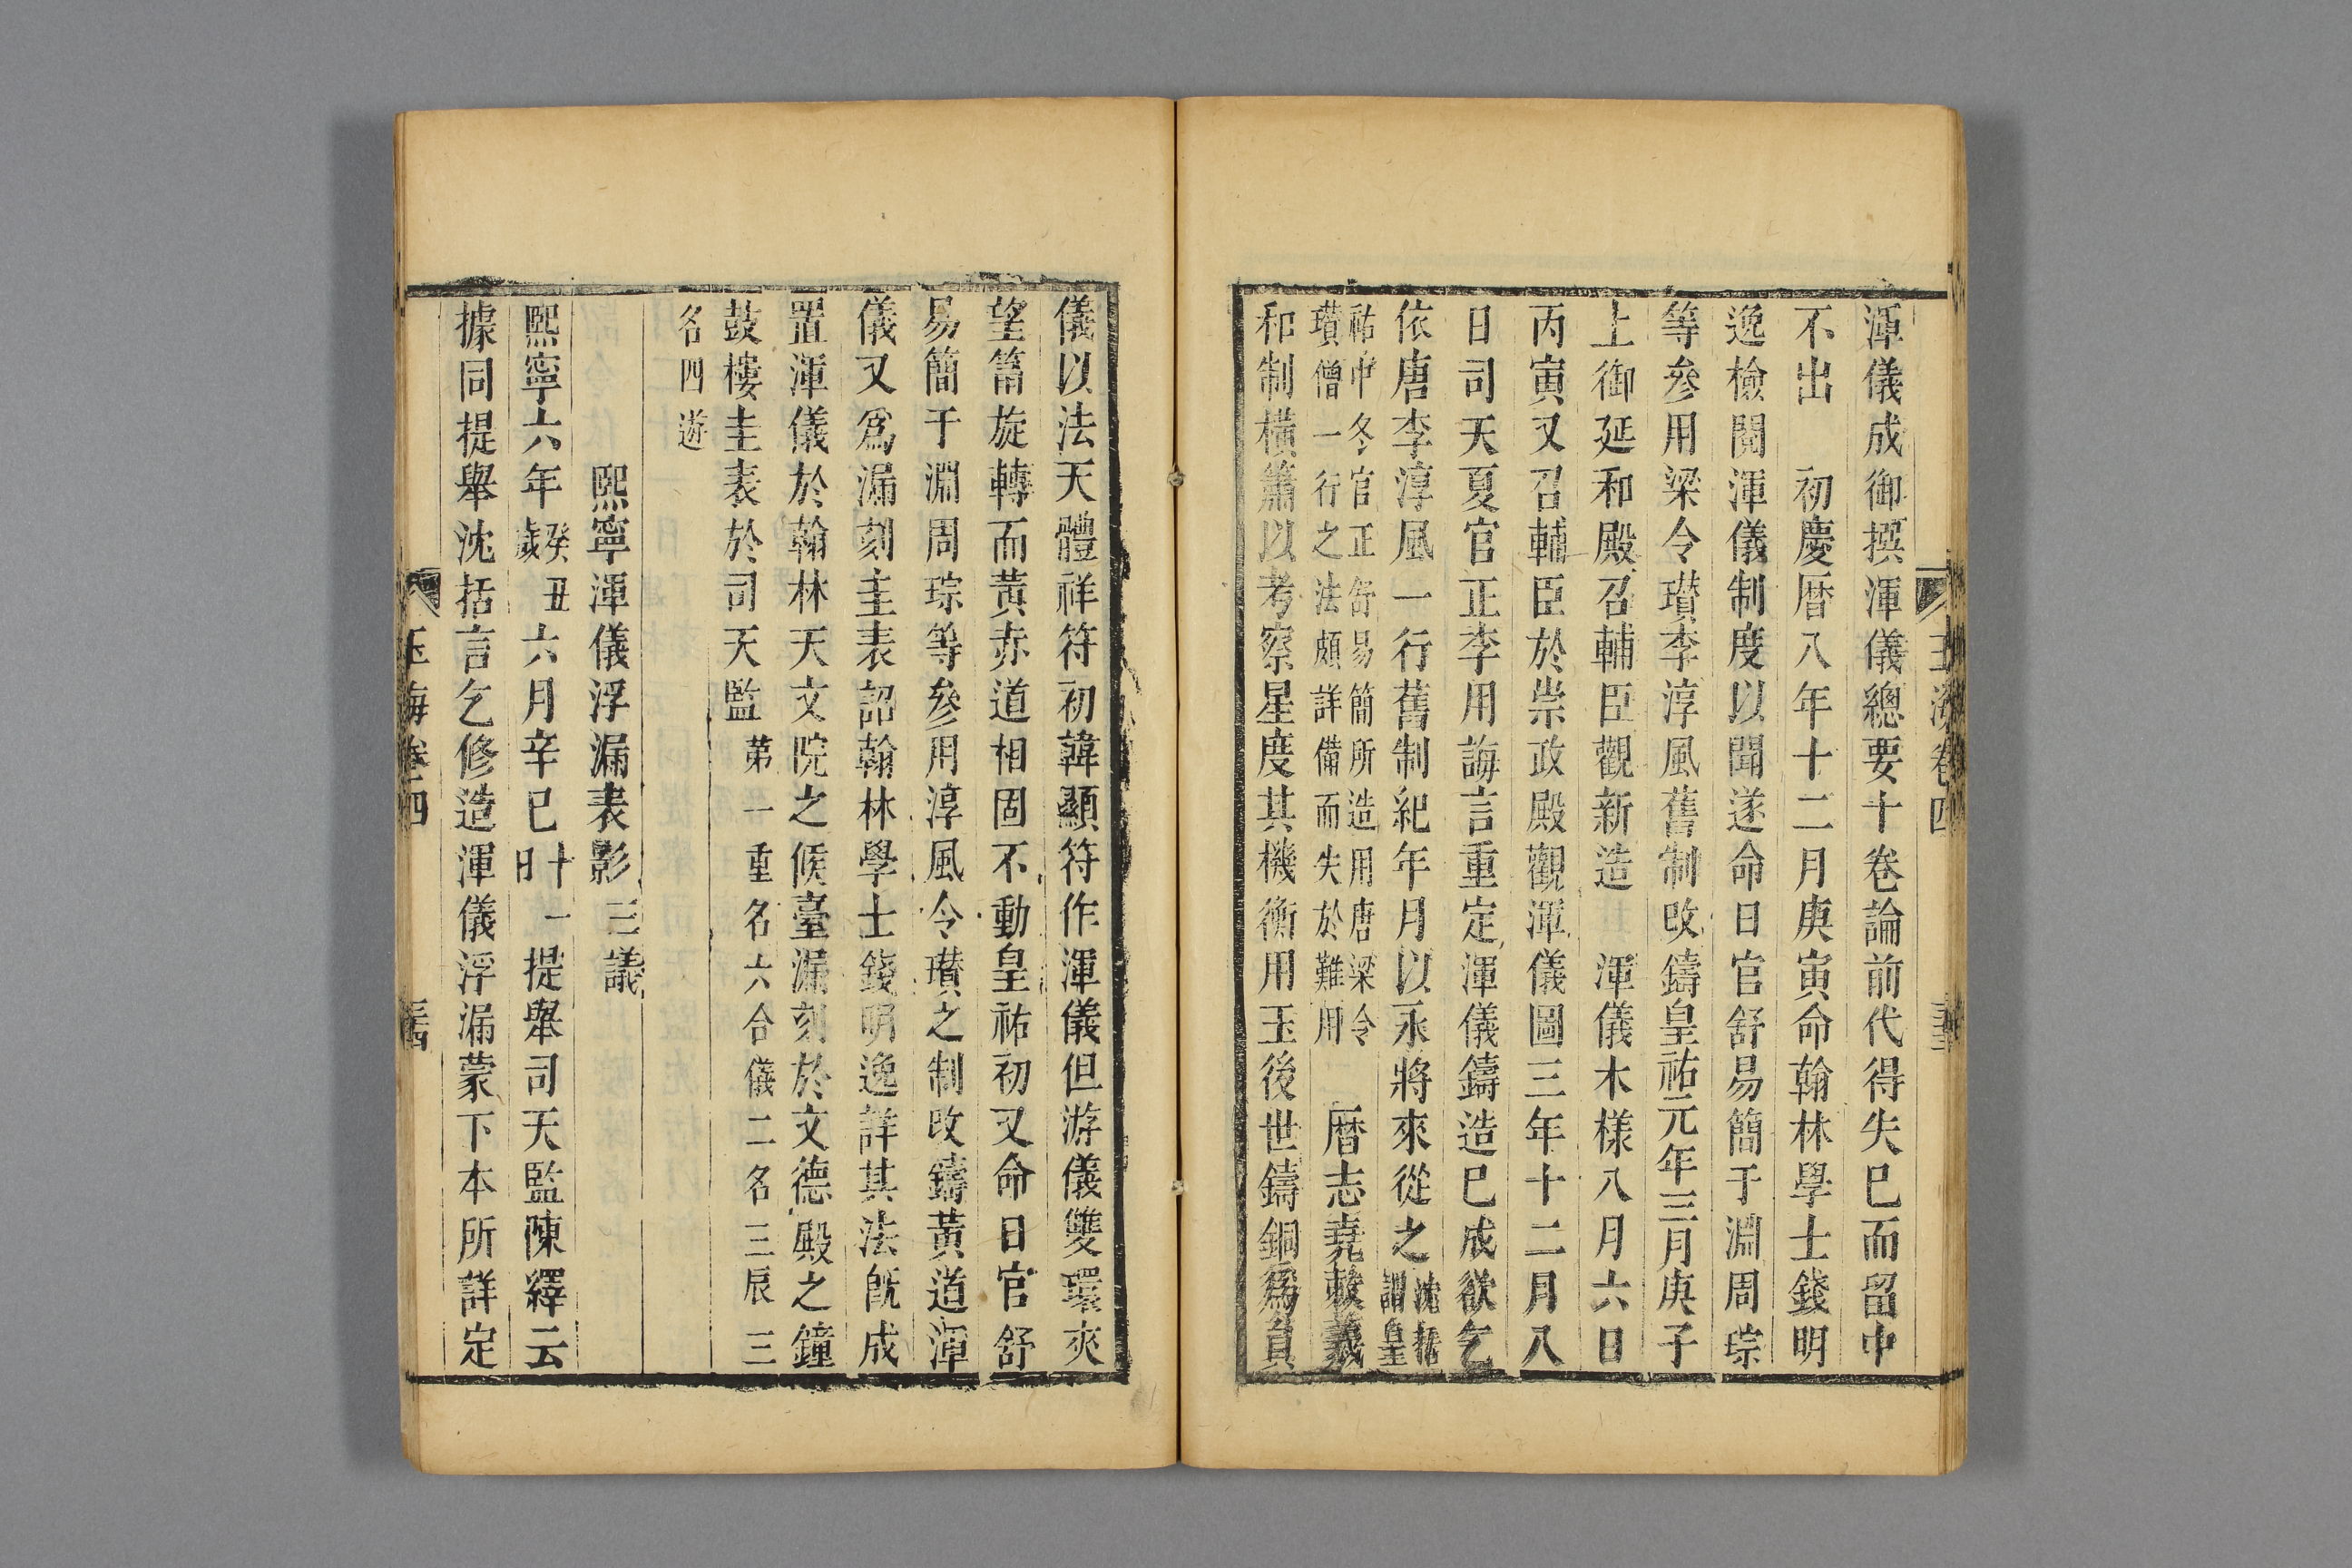 渾儀成御撰渾儀總要十卷論前代得失巳而留中
不出　初慶曆八年十二月庚寅命翰林學士錢明
逸檢閱渾儀制度以聞遂命日官舒易簡于淵周琮
等參用梁令瓚李淳風舊制改鑄皇祐元年三月庚子
上御延和殿召輔臣觀新造　渾儀木樣八月六日
丙寅又召輔臣於崇政殿觀渾儀圖三年十二月八
日司天夏官正李用誨言重定渾儀鑄造巳成欲乞
依唐李淳風一行舊制紀年月以永將來從之沈括謂皇
祐中冬官正舒易簡所造用唐梁令
瓚僧一行之法頗詳備而失於難用　曆志堯敕羲
和制橫簫以考察星度其機衡用玉後世鑄銅為負
玉海卷四
儀以法天體祥符初韓顯符作渾儀但游儀雙環夾
望筩旋轉而黃赤道相固不動皇祐初又命日官舒
易簡于淵周琮等參用淳風令瓚之制改鑄黃道渾
儀又為漏刻圭表詔翰林學士錢明逸詳其法既成
置渾儀於翰林天文院之候臺漏刻於文德殿之鐘
鼓樓圭表於司天監第一重名六合儀二名三辰三
名四遊
熙寧渾儀浮漏表影三議
熙寧六年癸丑歲六月辛巳十一日提舉司天監陳繹云
據同提舉沈括言乞修造渾儀浮漏蒙下本所詳定
玉海卷四